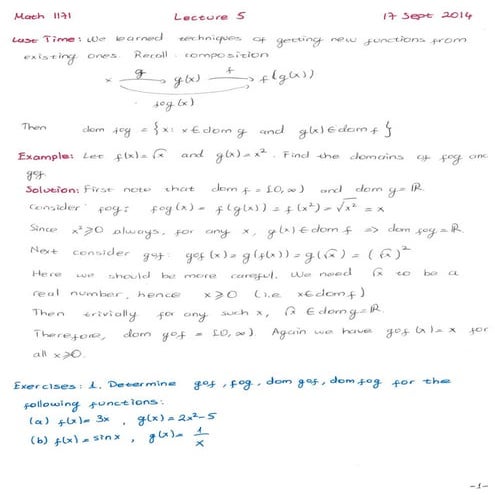 Math 1171 Lecture 5 17 Sept 2014
Last Time: We learned techniques of getting new functions from
existing ones. Recall composition
x g→ g(x) f→ f(g(x))
fog(x)
Then dom fog = {x: x∈dom g and g(x)∈dom f}
Example: Let f(x)=√x and g(x)=x². Find the domains of fog and
gof.
Solution: First note that dom f = [0,∞) and dom g = ℝ.
Consider fog: fog(x) = f(g(x)) = f(x²) = √x² = x
Since x²≥0 always, for any x, g(x)∈dom f ⇒ dom fog = ℝ.
Next consider gof: gof(x) = g(f(x)) = g(√x) = (√x)²
Here we should be more careful. We need √x to be a
real number, hence x≥0 (i.e x∈dom f)
Then trivially for any such x, √x ∈ dom g = ℝ.
Therefore, dom gof = [0,∞). Again we have gof(x)=x for
all x≥0.
Exercises: 1. Determine gof, fog, dom gof, dom fog for the
following functions:
(a) f(x)= 3x , g(x)= 2x²-5
(b) f(x)= sinx , g(x)= 1/x
-1-